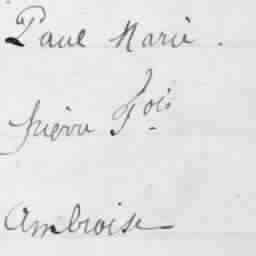 Paul Marie.
pierre Fois
Ambroise